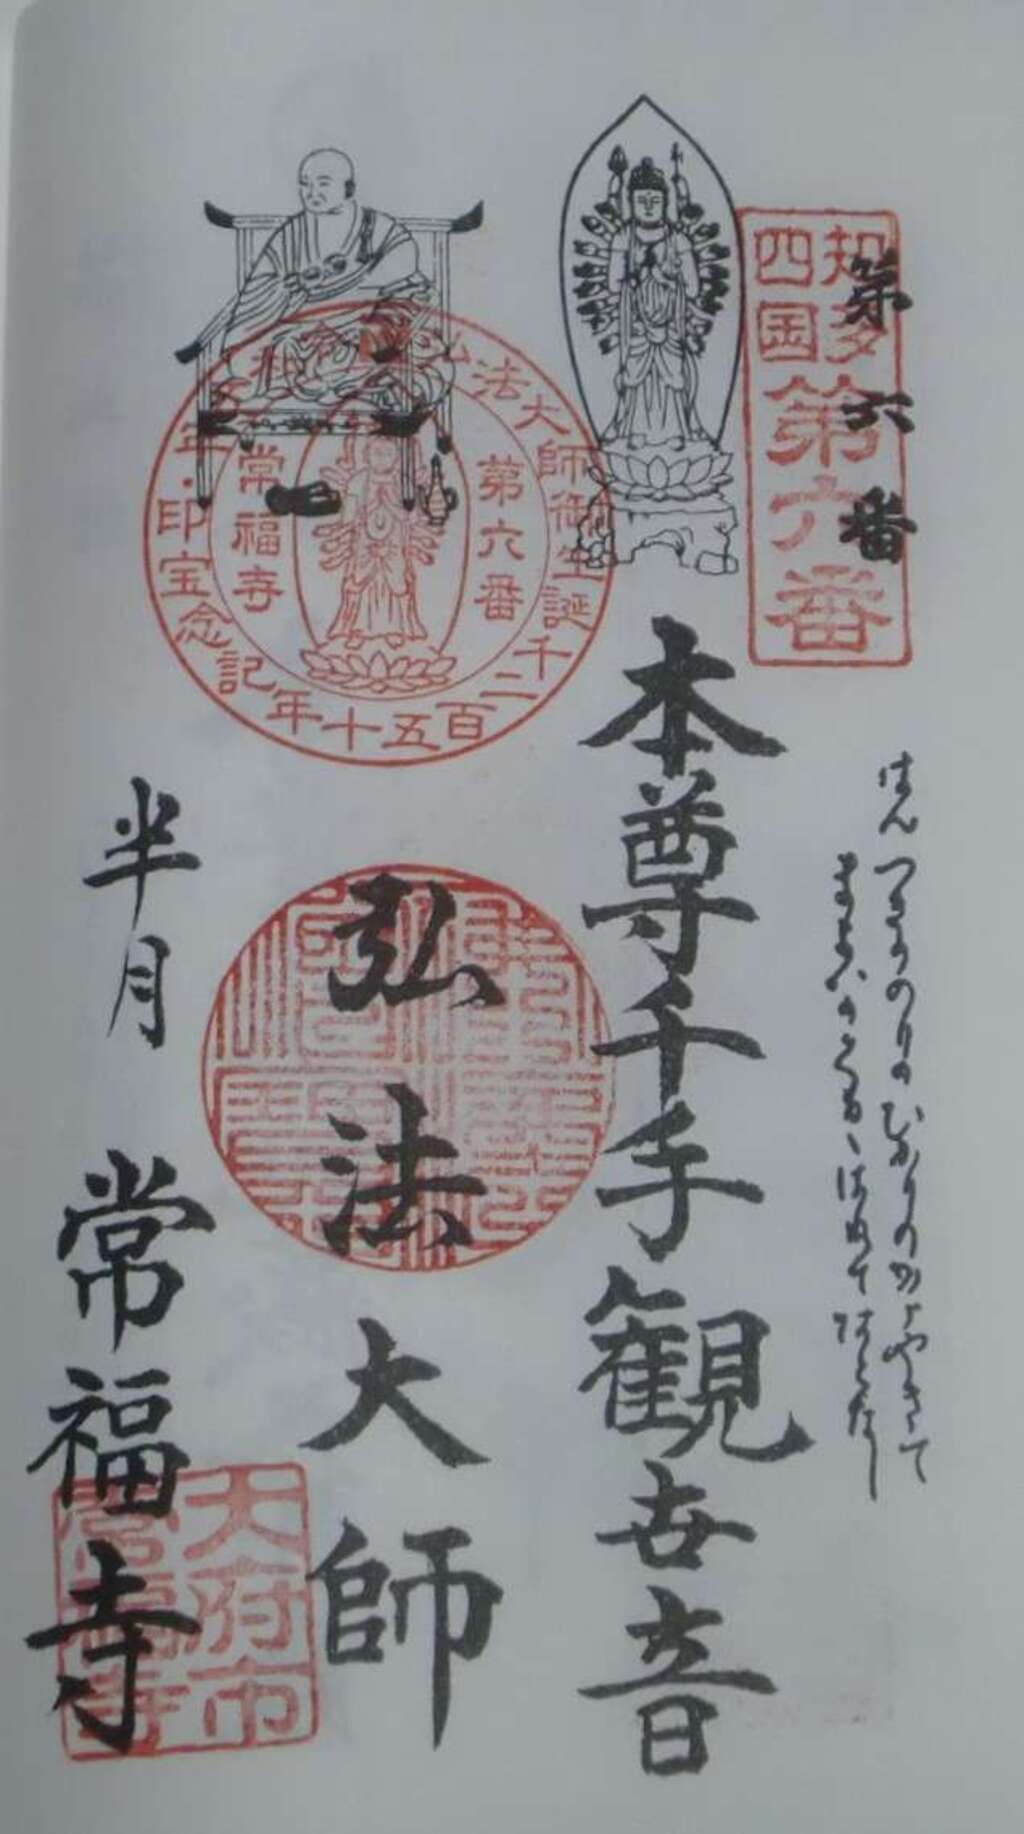 知多
四国
第六番
第六番
はんつきののりのひかりのかゞやきて
まよふ
本尊千手観世音
弘法大師御生誕千二百五十年記念宝印
第六番
常福寺
弘法大師
半月 常福寺
大府市
常福寺